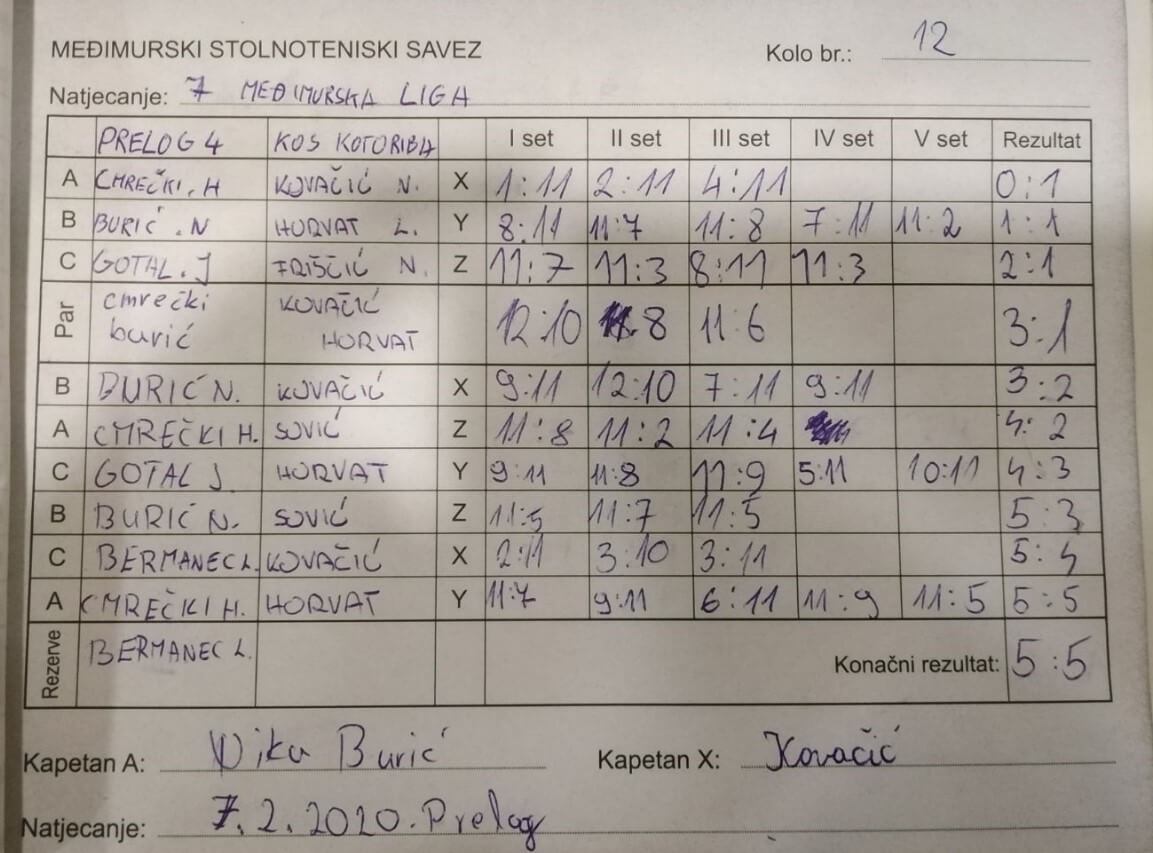 MEĐIMURSKI STOLNOTENISKI SAVEZ Kolo br.: 12
Natjecanje: 7 MEĐIMURSKA LIGA
PRELOG 4 KOS KOTORIBA I set II set III set IV set V set Rezultat
A CMREČKI, H KOVAČIĆ N. X 1:11 2:11 4:11 0:1
B BURIĆ .N HORVAT L. Y 8:11 11:7 11:8 7:11 11:2 1:1
C GOTAL. J FRIŠČIĆ N. Z 11:7 11:3 8:11 11:3 2:1
Par cmrečki KOVAČIĆ 12:10 11:8 11:6 3:1
burić HORVAT
B BURIĆ N. KOVAČIĆ X 9:11 12:10 7:11 9:11 3:2
A CMREČKI H. SOVIĆ Z 11:8 11:2 11:4 4:2
C GOTAL J HORVAT Y 9:11 11:8 11:9 5:11 10:11 4:3
B BURIĆ N. SOVIĆ Z 11:5 11:7 11:5 5:3
C BERMANEC L. KOVAČIĆ X 2:11 3:10 3:11 5:4
A CMREČKI H. HORVAT Y 11:7 9:11 6:11 11:9 11:5 5:5
Rezerve BERMANEC L. Konačni rezultat: 5:5
Kapetan A: Nika Burić Kapetan X: Kovačić
Natjecanje: 7.2.2020. Prelog